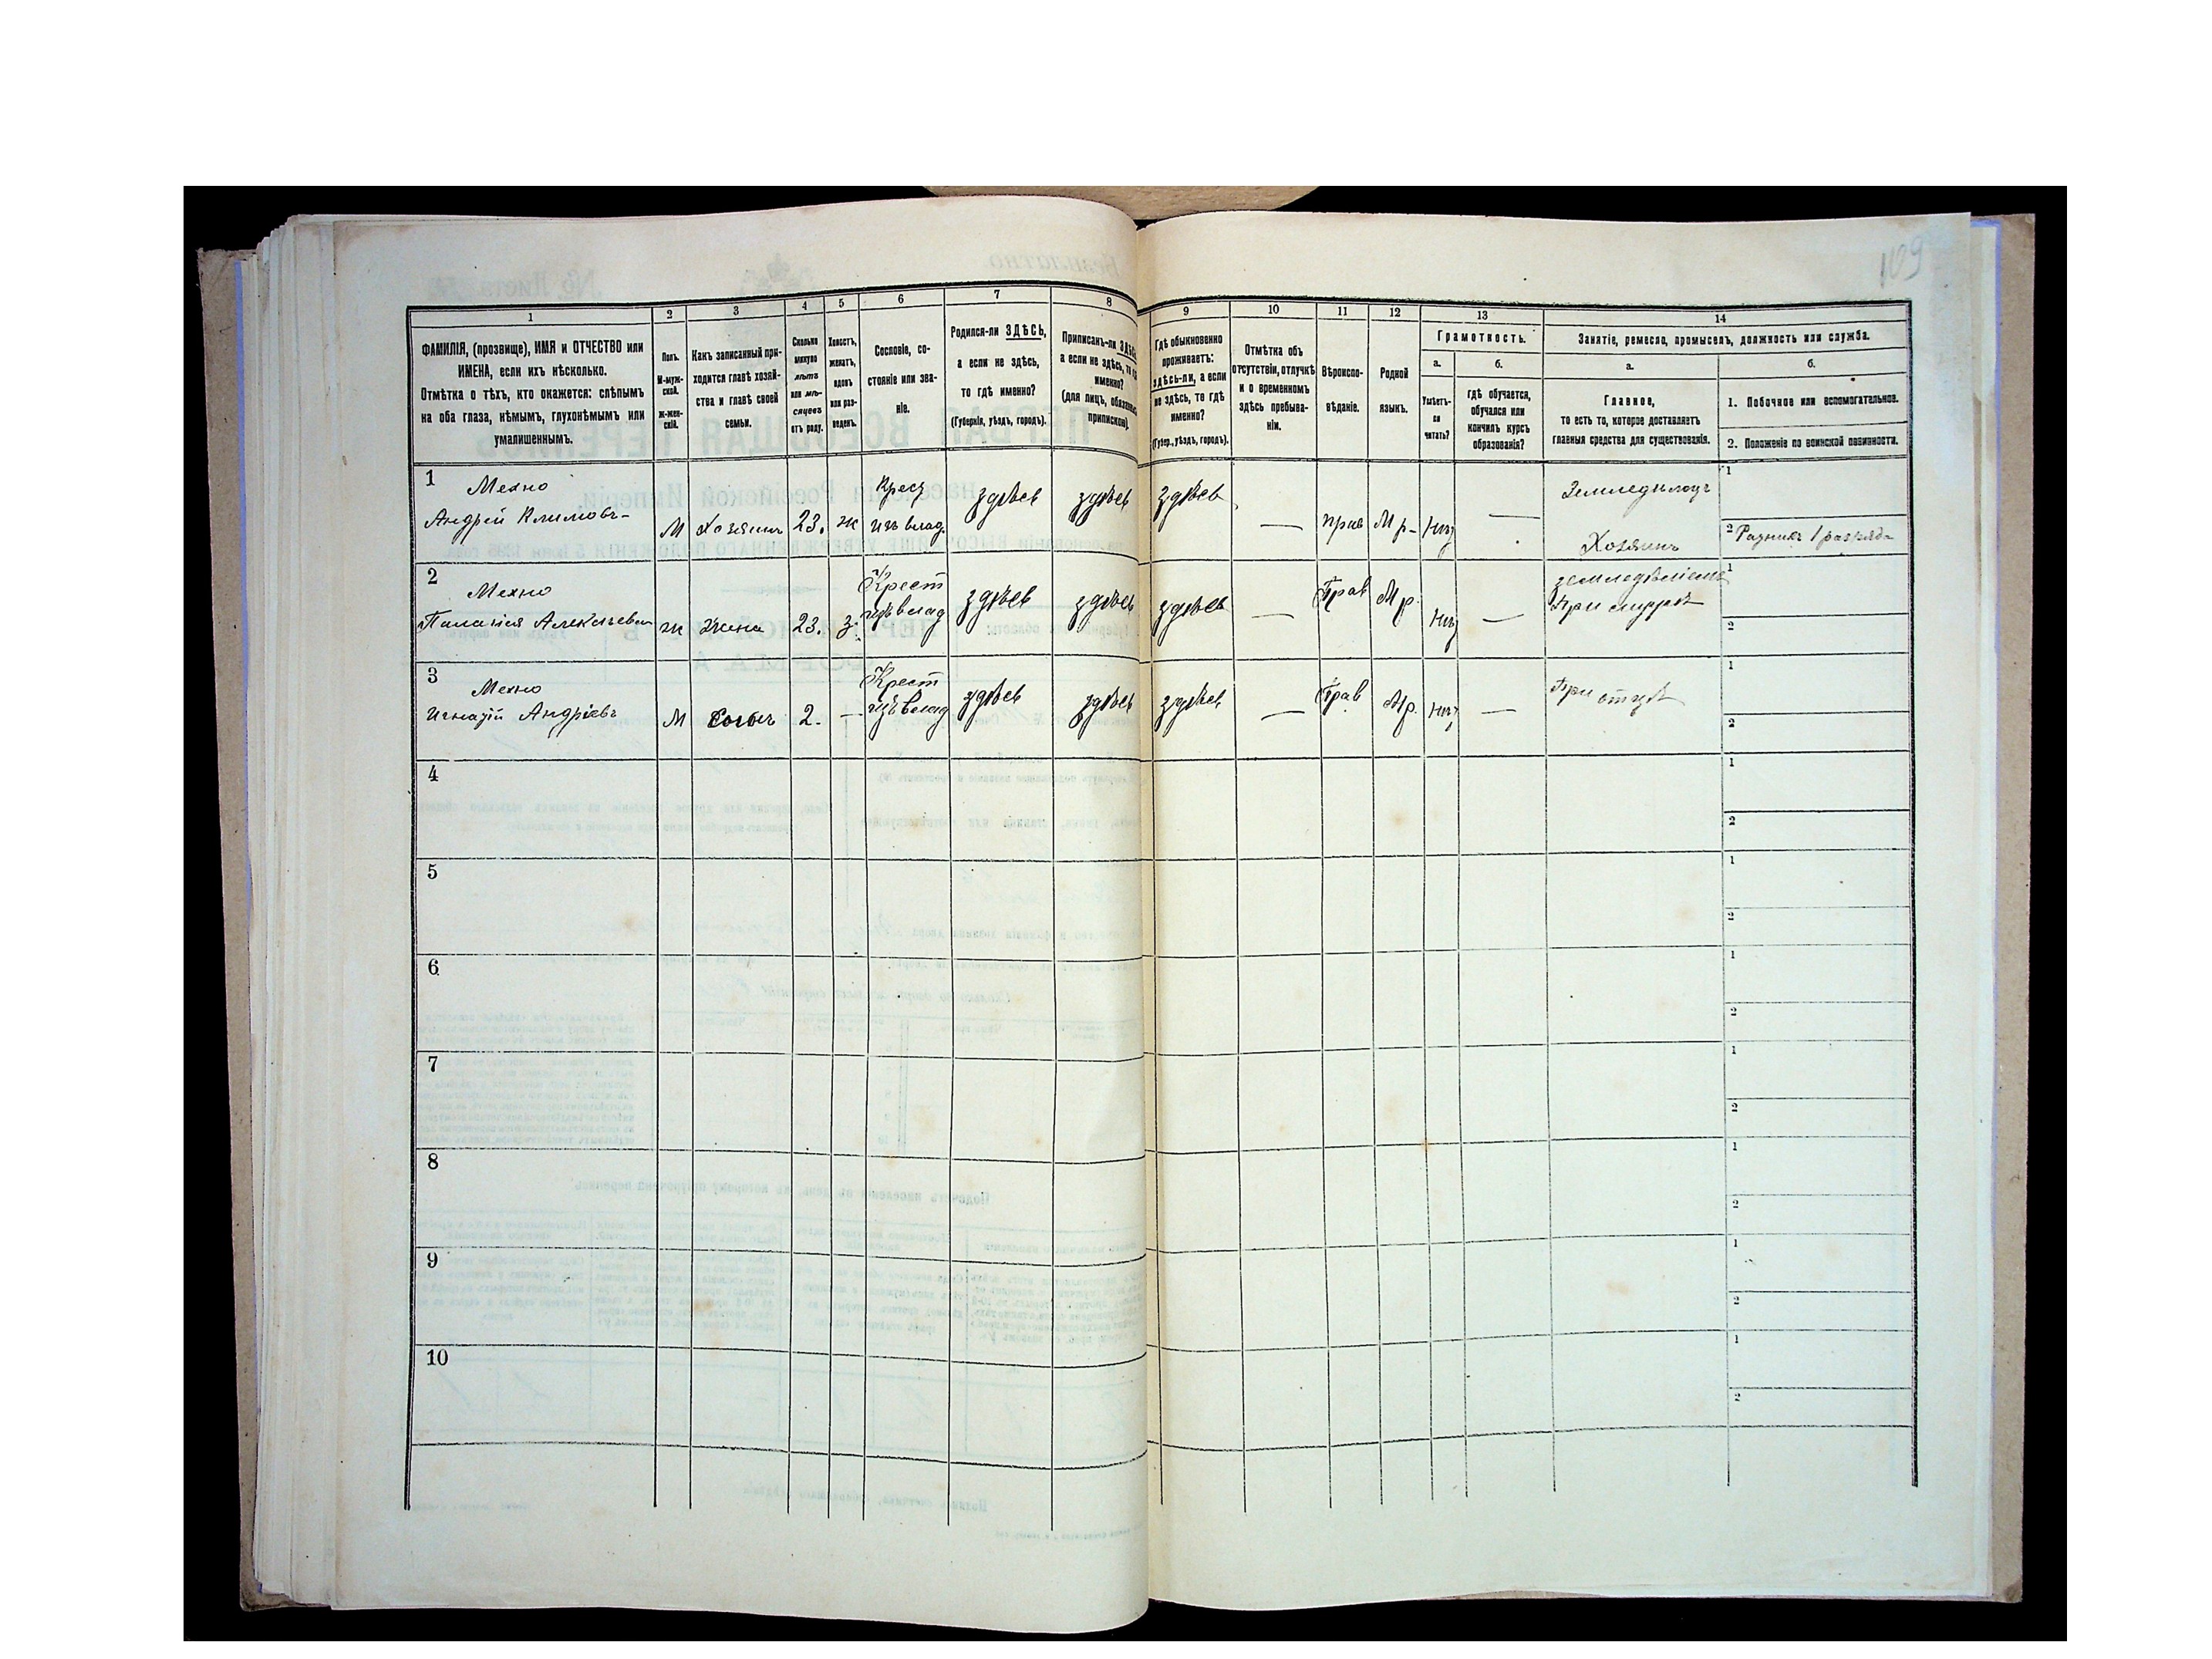 109
1 2 3 4 5 6 7 8 9 10 11 12 13 14
ФАМИЛІЯ, (прозвище), ИМЯ и ОТЧЕСТВО или
ИМЕНА, если ихъ нѣсколько.
Отмѣтка о тѣхъ, кто окажется: слѣпымъ
на оба глаза, нѣмымъ, глухонѣмымъ или
умалишеннымъ.
Полъ.
М-муж-
ской.
ж-жен-
скій.
Какъ записанный при-
ходится главѣ хозяй-
ства и главѣ своей
семьи.
Сколько
минуло
лѣтъ
или мѣ-
сяцевъ
отъ роду.
Холостъ,
женатъ,
вдовъ
или раз-
веденъ.
Сословіе, со-
стояніе или зва-
ніе.
Родился-ли ЗДѢСЬ,
а если не здѣсь,
то гдѣ именно?
(Губернія, уѣздъ, городъ).
Приписанъ-ли ЗДѢСЬ
а если не здѣсь, то гдѣ
именно?
(для лицъ, обязанныхъ
припиской).
Гдѣ обыкновенно
проживаетъ:
здѣсь-ли, а если
не здѣсь, то гдѣ
именно?
(Губер., уѣздъ, городъ).
Отмѣтка объ
отсутствіи, отлучкѣ
и о временномъ
здѣсь пребыва-
ніи.
Вѣроиспо-
вѣданіе.
Родной
языкъ.
Грамотность.
а.
Умѣетъ-
ли
читать?
б.
гдѣ обучается,
обучался или
кончилъ курсъ
образованія?
Занятіе, ремесло, промыселъ, должность или служба.
а.
Главное,
то есть то, которое доставляетъ
главныя средства для существованія.
б.
1. Побочное или вспомогательное.
2. Положеніе по воинской повинности.
1 Махно
Андрей Климовъ
М Хозяинъ 23. ж
Крес
изъ влад.
здѣсь здѣсь здѣсь — прав М р- нѣт —
Земледѣлецъ
Хозяинъ
1
2 Ратникъ 1 разряда
2 Махно
Палагія Алексѣева
ж жена 23. з.
Крест
изъ влад
здѣсь здѣсь здѣсь — Прав М р. нѣт —
земледѣліемъ
При
1
2
3 Махно
Игнатій Андріевъ
М Сынъ 2. —
Крест
изъ влад
здѣсь здѣсь здѣсь — Прав М р. нѣт —
При отцѣ
1
2
4
1
2
5
1
2
6
1
2
7
1
2
8
1
2
9
1
2
10
1
2